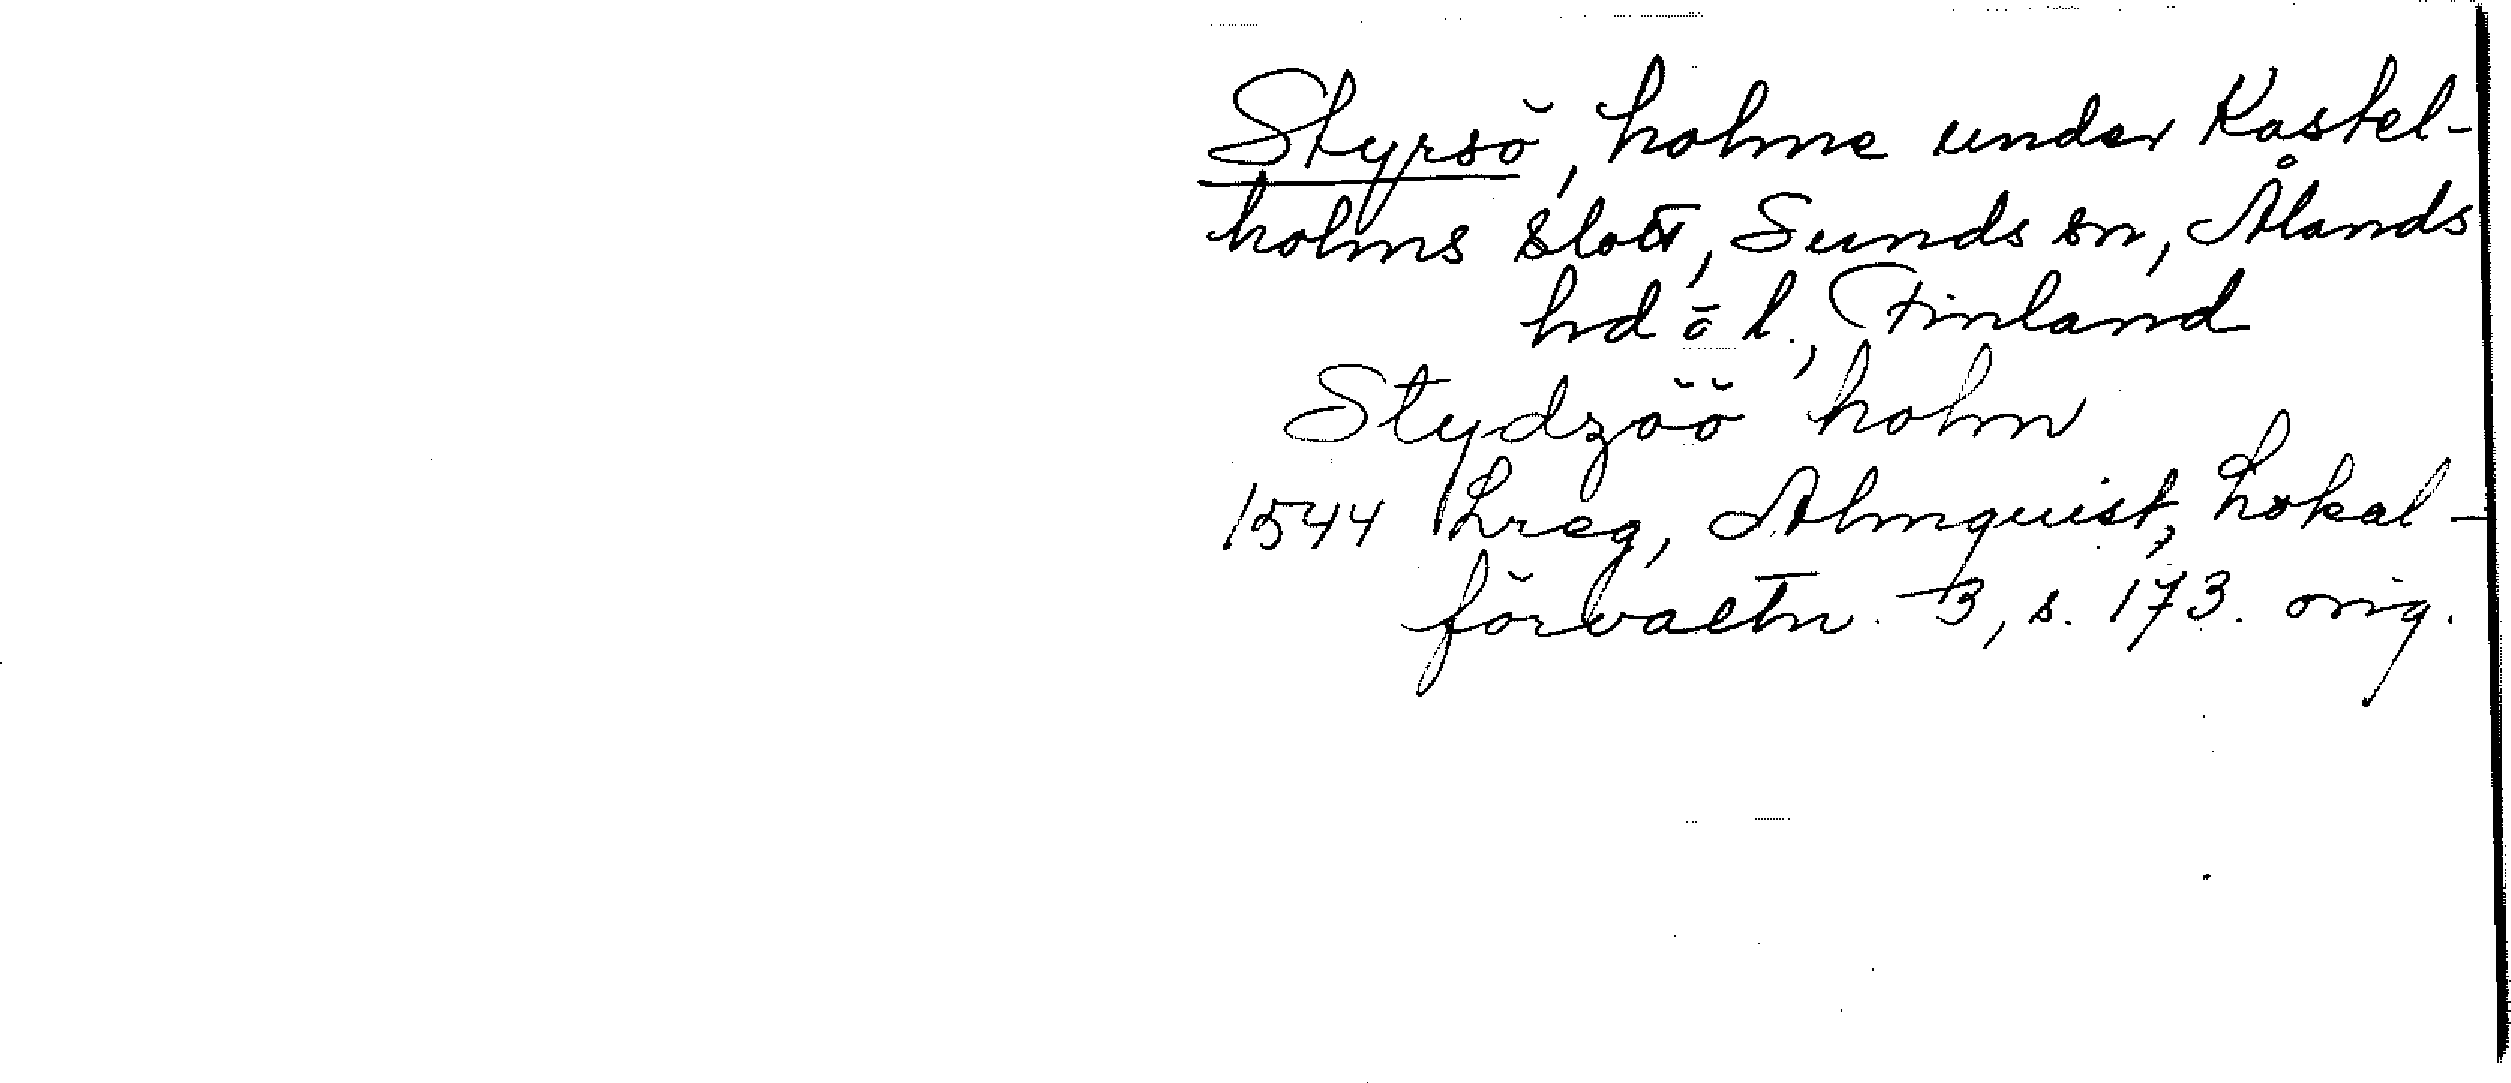 Styrsö, holme under Kastel-
holms slott, Sunds sn, Ålands
hd o l., Finland
Stydzöö holm
1544 Lreg, Almquist, Lokal-
förvaltn. 3, s. 173. orig.